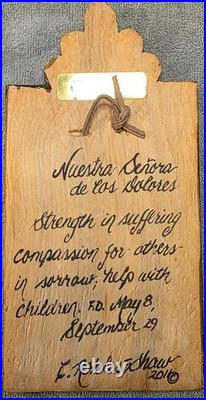 Nuestra Señora
de los Dolores
Strength in suffering
compassion for others-
in sorrow, help with
children. F.D. May 8,
September 29
Shaw
2016©